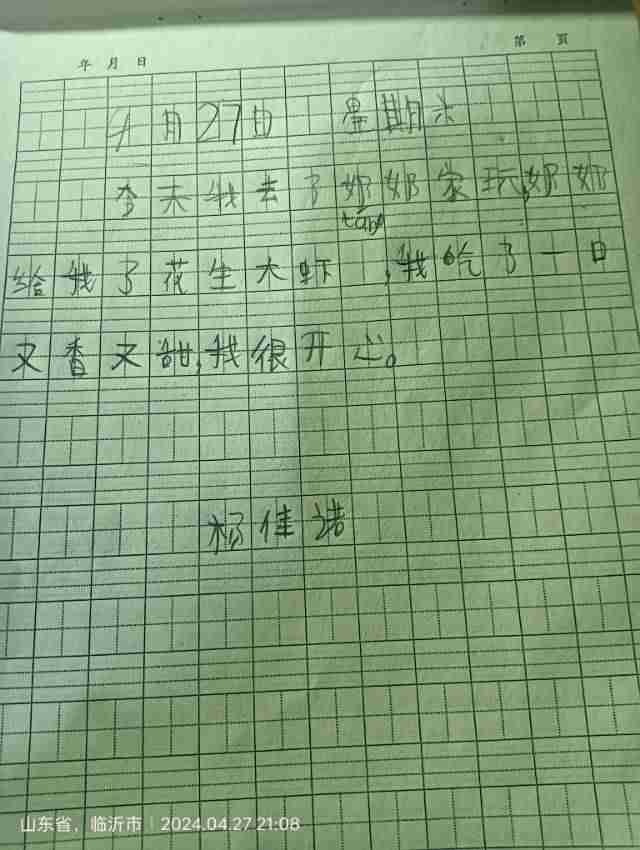 年 月 日
第 页
4月27日 星期六
今天我去了奶奶家玩,奶奶
tang
给我了花生大虾,我吃了一口
又香又甜,我很开心。
杨佳诺
山东省,临沂市 | 2024.04.27 21:08